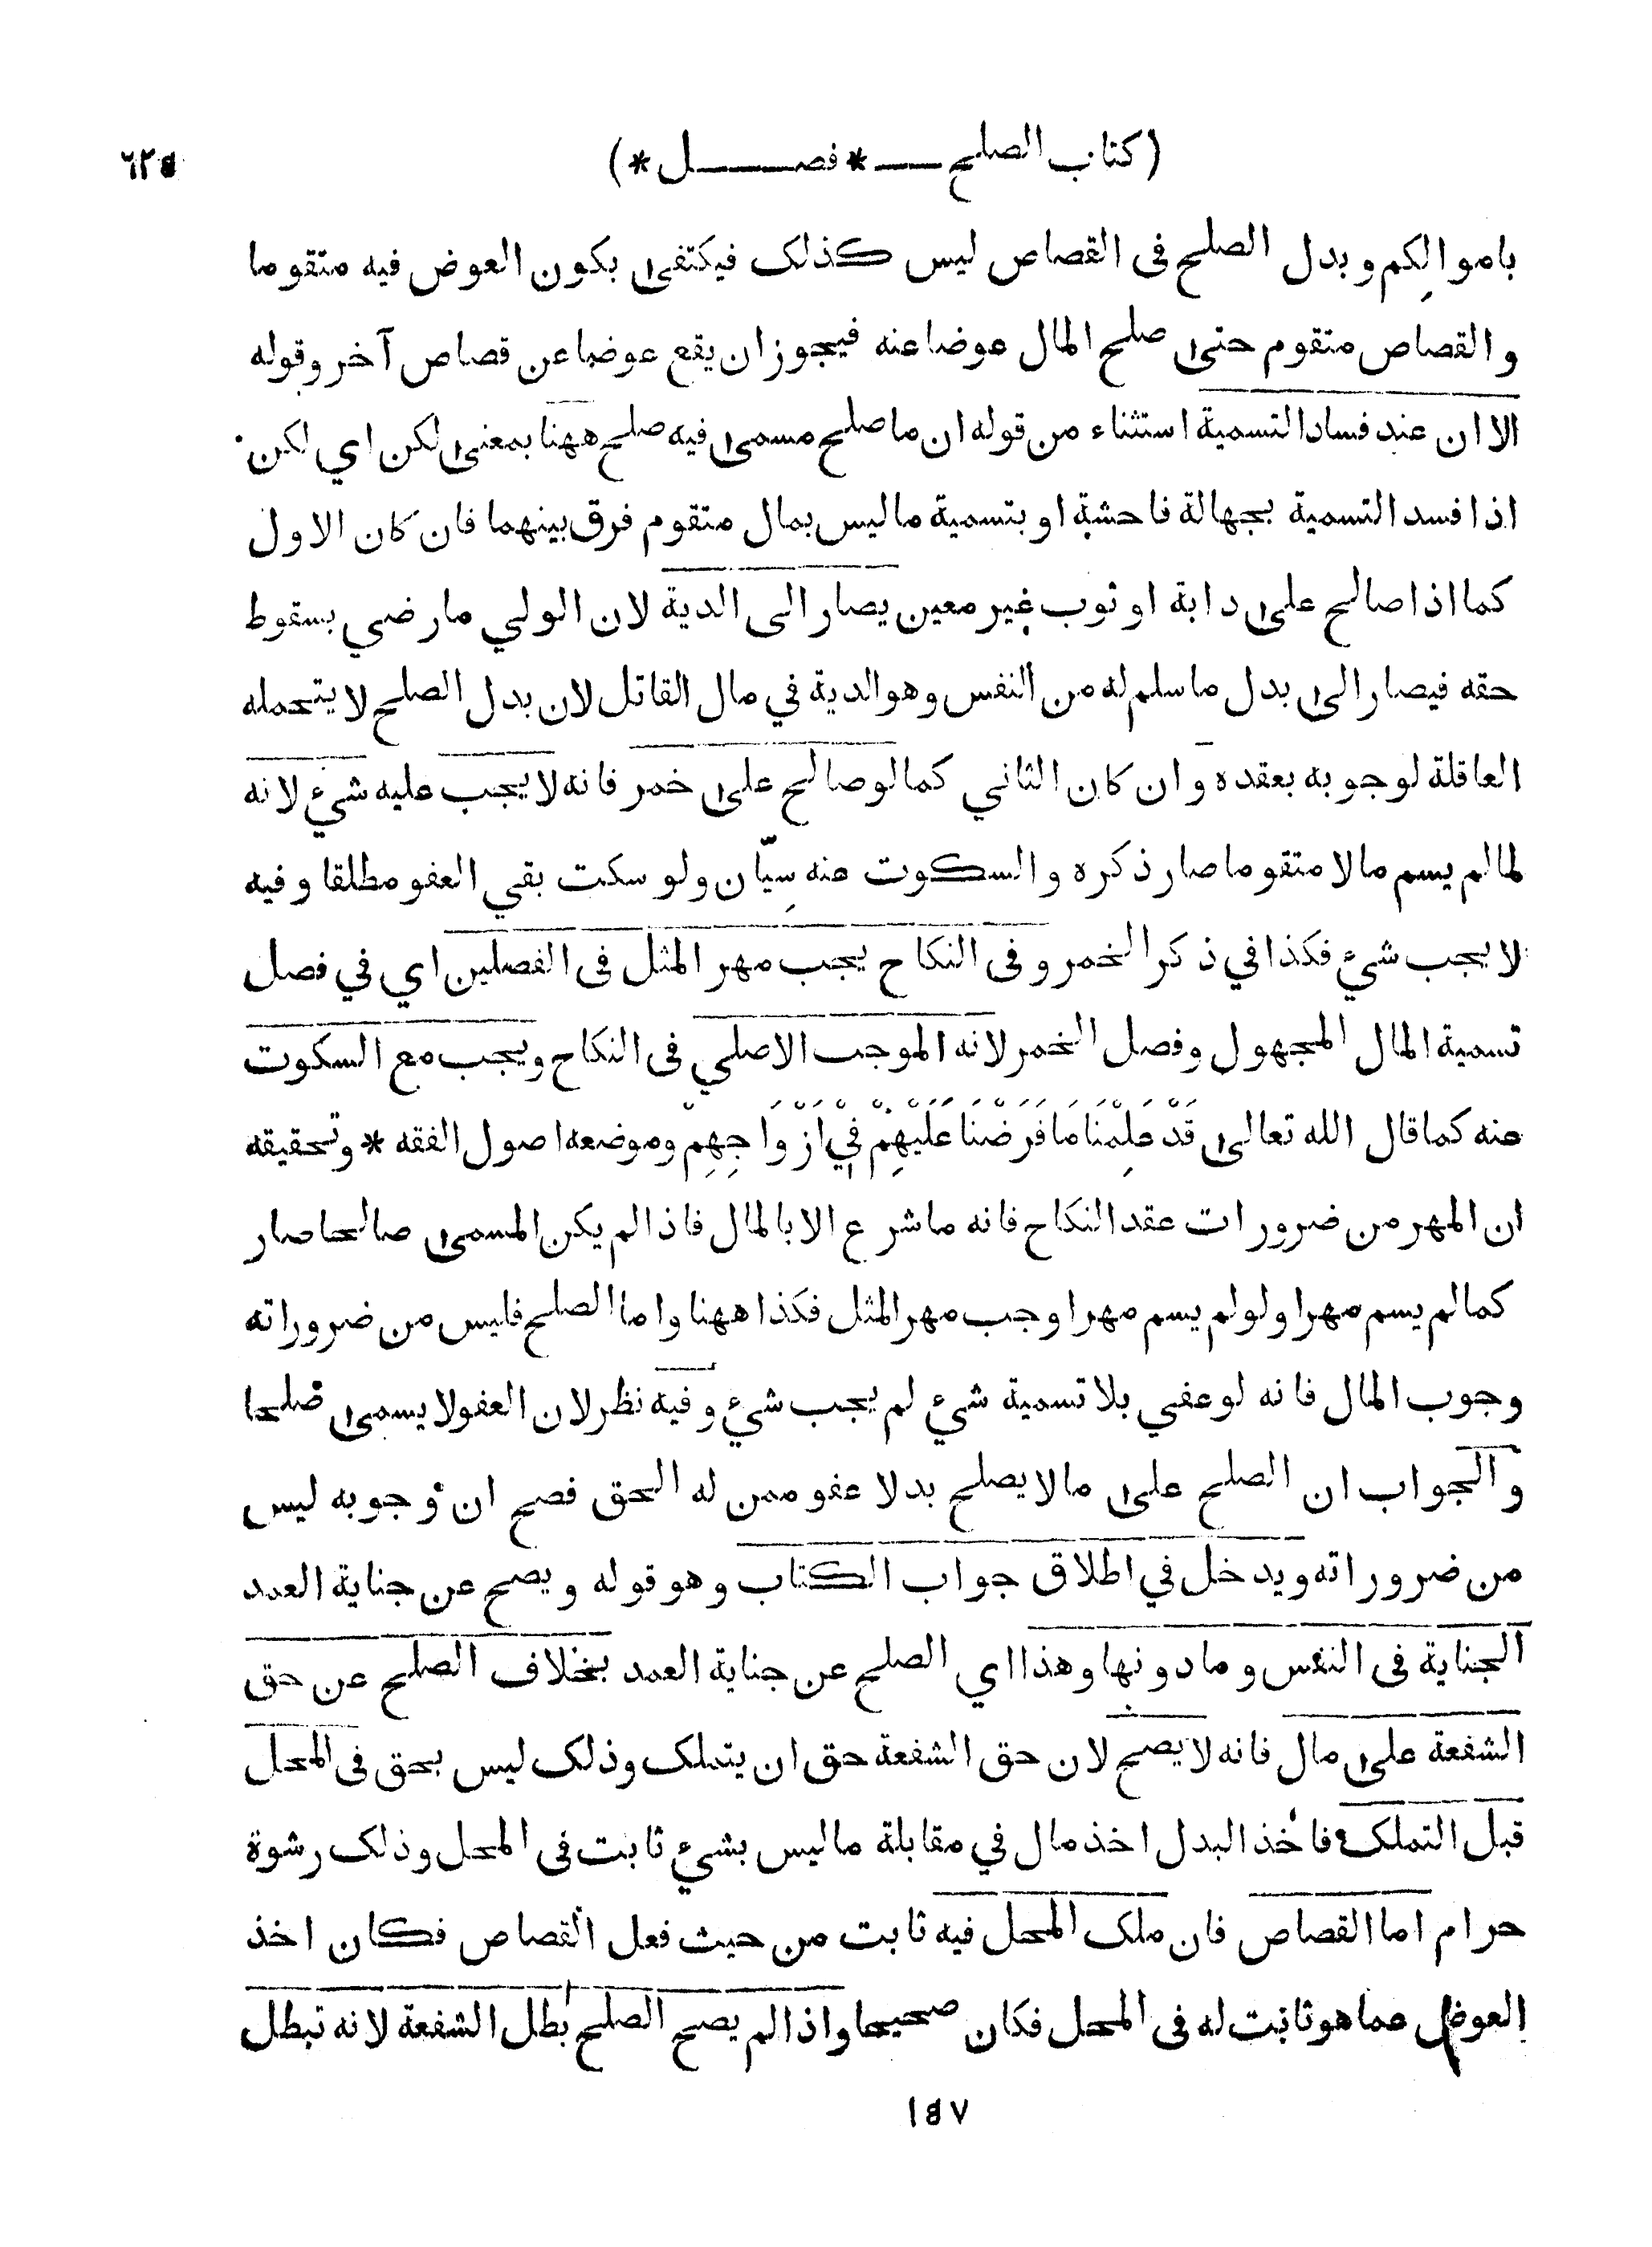 (كتاب الصلح — * فصـــل *)
٦٢٥
باموالكم وبدل الصلح في القصاص ليس كذلك فيكتفى بكون العوض فيه متقوما
والقصاص متقوم حتى صلح المال عوضا عنه فيجوز ان يقع عوضا عن قصاص آخر وقوله
الا ان عند فساد التسمية استثناء من قوله ان ما صلح مسمى فيه صلح ههنا بمعنى لكن اي لكن
اذا فسد التسمية بجهالة فاحشة او بتسمية ما ليس بمال متقوم فرق بينهما فان كان الاول
كما اذا صالح على دابة او ثوب غير معين يصار الى الدية لان الولي ما رضي بسقوط
حقه فيصار الى بدل ما سلم له من النفس وهو الدية في مال القاتل لان بدل الصلح لا يتحمله
العاقلة لوجوبه بعقده وان كان الثاني كما لو صالح على خمر فانه لا يجب عليه شيء لانه
لما لم يسم مالا متقوما صار ذكره والسكوت عنه سِيّان ولو سكت بقي العفو مطلقا وفيه
لا يجب شيء فكذا في ذكر الخمر وفى النكاح يجب مهر المثل فى الفصلين اي في فصل
تسمية المال المجهول وفصل الخمر لانه الموجب الاصلي فى النكاح ويجب مع السكوت
عنه كما قال الله تعالى قَدْ عَلِمْنَا مَا فَرَضْنَا عَلَيْهِمْ فِيْ اَزْوَاجِهِمْ وموضعه اصول الفقه * وتحقيقه
ان المهر من ضرورات عقد النكاح فانه ما شرع الا بالمال فاذا لم يكن المسمى صالحا صار
كما لم يسم مهرا ولو لم يسم مهرا وجب مهر المثل فكذا ههنا واما الصلح فليس من ضروراته
وجوب المال فانه لو عفى بلا تسمية شيء لم يجب شيء وفيه نظر لان العفو لا يسمى صلحا
والجواب ان الصلح على ما لا يصلح بدلا عفو ممن له الحق فصح ان وجوبه ليس
من ضروراته ويدخل في اطلاق جواب الكتاب وهو قوله ويصح عن جناية العمد
الجناية فى النفس وما دونها وهذا اي الصلح عن جناية العمد بخلاف الصلح عن حق
الشفعة على مال فانه لا يصح لان حق الشفعة حق ان يتملك وذلك ليس بحق فى المحل
قبل التملك فاخذ البدل اخذ مال في مقابلة ما ليس بشيء ثابت فى المحل وذلك رشوة
حرام اما القصاص فان ملك المحل فيه ثابت من حيث فعل القصاص فكان اخذ
العوض عما هو ثابت له فى المحل فكان صحيحا واذا لم يصح الصلح بطل الشفعة لانه تبطل
١٤٧